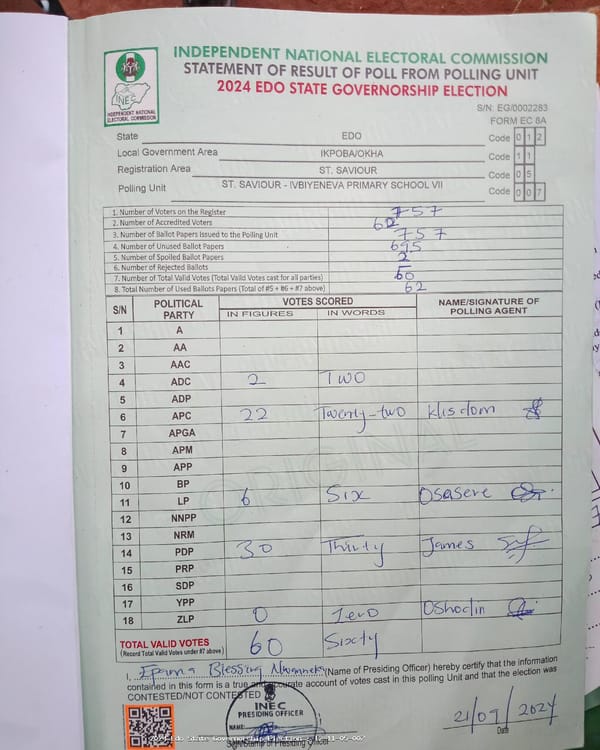 INDEPENDENT NATIONAL ELECTORAL COMMISSION
STATEMENT OF RESULT OF POLL FROM POLLING UNIT
2024 EDO STATE GOVERNORSHIP ELECTION
INEC
INDEPENDENT NATIONAL
ELECTORAL COMMISSION
S/N: EG/0002283
FORM EC 8A
State EDO Code 0 1 2
Local Government Area IKPOBA/OKHA Code 1 1
Registration Area ST. SAVIOUR Code 0 5
Polling Unit ST. SAVIOUR - IVBIYENEVA PRIMARY SCHOOL VII Code 0 0 7
1. Number of Voters on the Register 757
2. Number of Accredited Voters 62
3. Number of Ballot Papers issued to the Polling Unit 757
4. Number of Unused Ballot Papers 695
5. Number of Spoiled Ballot Papers 2
6. Number of Rejected Ballots –
7. Number of Total Valid Votes (Total Valid Votes cast for all parties) 60
8. Total Number of Used Ballots Papers (Total of #5 + #6 + #7 above) 62
S/N POLITICAL PARTY VOTES SCORED NAME/SIGNATURE OF POLLING AGENT
IN FIGURES IN WORDS
1 A
2 AA
3 AAC
4 ADC 2 Two
5 ADP
6 APC 22 Twenty-two Klisdom
7 APGA
8 APM
9 APP
10 BP
11 LP 6 Six Osasere
12 NNPP
13 NRM
14 PDP 30 Thirty James
15 PRP
16 SDP
17 YPP
18 ZLP 0 Zero Oshodin
TOTAL VALID VOTES 60 Sixty
(Record Total Valid Votes under #7 above)
I, Blessing (Name of Presiding Officer) hereby certify that the information
contained in this form is a true and accurate account of votes cast in this polling Unit and that the election was
CONTESTED/NOT CONTESTED
INEC
PRESIDING OFFICER
NAME:
21/09/2024
Date
Sign/Stamp of Presiding Officer